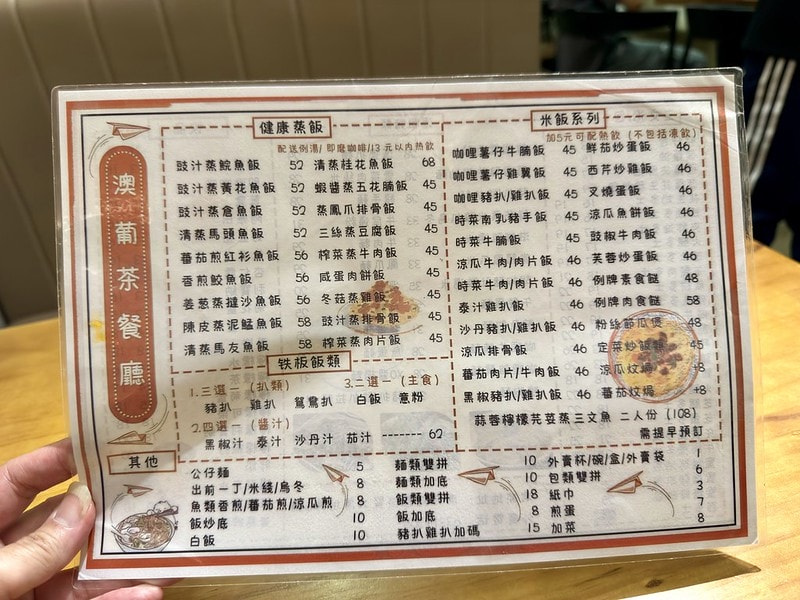 澳葡茶餐廳
健康蒸飯
配送例湯/即磨咖啡/13元以內熱飲
豉汁蒸鯇魚飯 52 清蒸桂花魚飯 68
豉汁蒸黃花魚飯 52 蝦醬蒸五花腩飯 45
豉汁蒸倉魚飯 52 蒸鳳爪排骨飯 45
清蒸馬頭魚飯 52 三絲蒸豆腐飯 45
蕃茄煎紅衫魚飯 56 榨菜蒸牛肉飯 45
香煎鮫魚飯 56 咸蛋肉餅飯 45
姜葱蒸撻沙魚飯 56 冬菇蒸雞飯 45
陳皮蒸泥鯭魚飯 58 豉汁蒸排骨飯 45
清蒸馬友魚飯 58 榨菜蒸肉片飯 45
铁板飯類
1.三選一(扒類) 3.二選一(主食)
豬扒 雞扒 鴛鴦扒 白飯 意粉
2.四選一(醬汁)
黑椒汁 泰汁 沙丹汁 茄汁 ------- 62
米飯系列
加5元可配熱飲(不包括凍飲)
咖哩薯仔牛腩飯 45 鮮茄炒蛋飯 46
咖哩薯仔雞翼飯 45 西芹炒雞飯 46
咖哩豬扒/雞扒飯 45 叉燒蛋飯 46
時菜南乳豬手飯 45 涼瓜魚餅飯 46
時菜牛腩飯 45 豉椒牛肉飯 46
涼瓜牛肉/肉片飯 45 芙蓉炒蛋飯 46
時菜牛肉/肉片飯 45 例牌素食餸 48
泰汁雞扒飯 45 例牌肉食餸 58
沙丹豬扒/雞扒飯 45 粉絲節瓜煲 48
涼瓜排骨飯 45 定菜炒飯麵 45
蕃茄肉片/牛肉飯 45 涼瓜炆焗 +8
黑椒豬扒/雞扒飯 45 蕃茄炆焗 +8
蒜蓉檸檬芫荽蒸三文魚 二人份(108)
需提早預訂
其他
公仔麵 5 麵類雙拼 10 外賣杯/碗/盒/外賣袋 1
出前一丁/米綫/烏冬 8 麵類加底 10 包類雙拼 6
魚類香煎/蕃茄煎/涼瓜煎 8 飯類雙拼 18 紙巾 3
飯炒底 10 飯加底 8 煎蛋 7
白飯 10 豬扒雞扒加碼 15 加菜 8